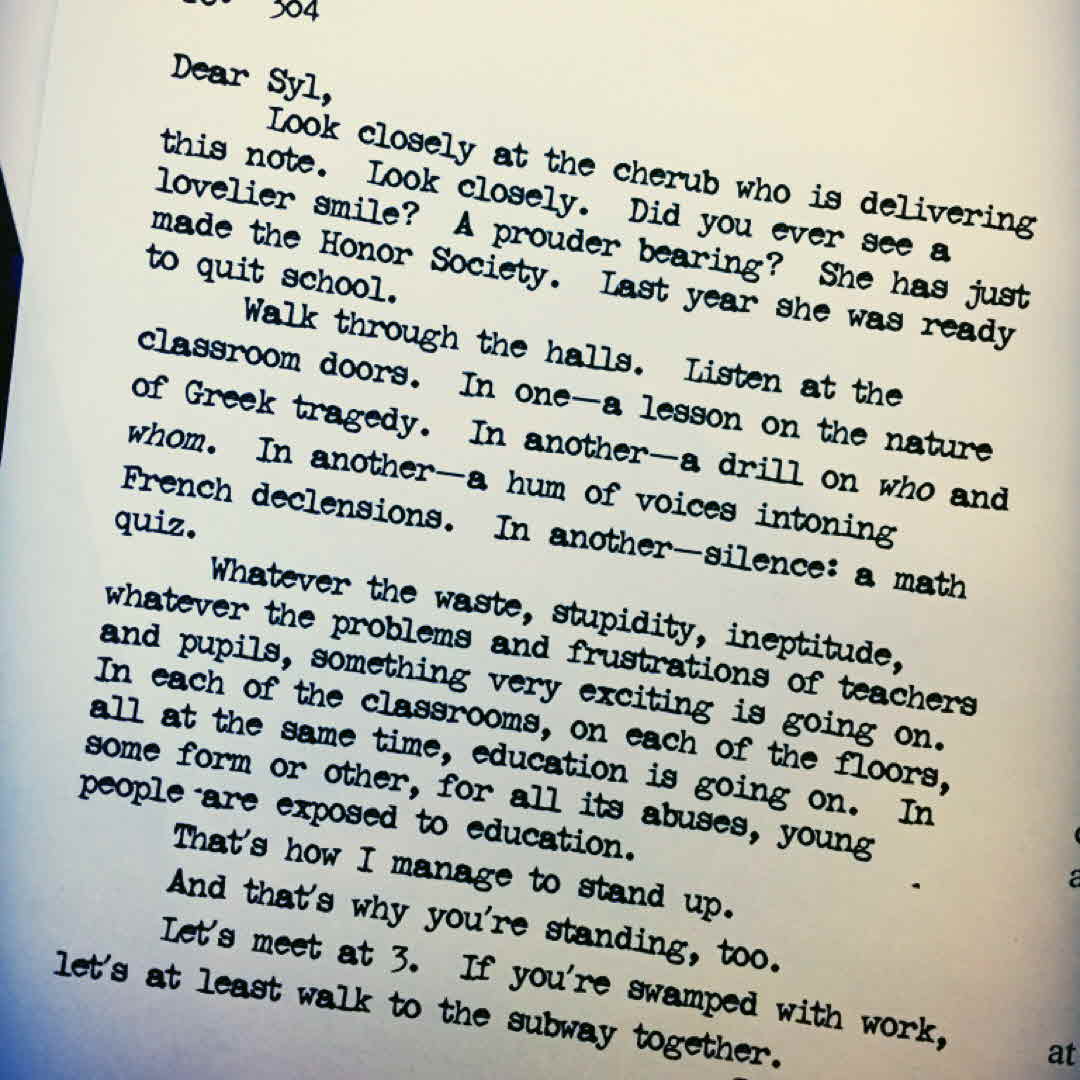 304
Dear Syl,
Look closely at the cherub who is delivering
this note. Look closely. Did you ever see a
lovelier smile? A prouder bearing? She has just
made the Honor Society. Last year she was ready
to quit school.
Walk through the halls. Listen at the
classroom doors. In one—a lesson on the nature
of Greek tragedy. In another—a drill on who and
whom. In another—a hum of voices intoning
French declensions. In another—silence: a math
quiz.
Whatever the waste, stupidity, ineptitude,
whatever the problems and frustrations of teachers
and pupils, something very exciting is going on.
In each of the classrooms, on each of the floors,
all at the same time, education is going on. In
some form or other, for all its abuses, young
people are exposed to education.
That's how I manage to stand up.
And that's why you're standing, too.
Let's meet at 3. If you're swamped with work,
let's at least walk to the subway together.
at